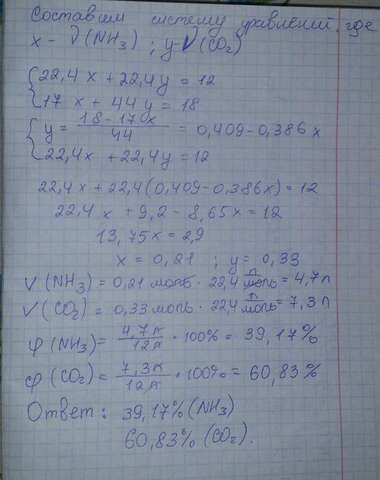 Составим систему уравнений, где
x - ν(NH₃) ; y - ν(CO₂)
{ 22,4x + 22,4y = 12
{ 17x + 44y = 18
{ y = (18 - 17x)/44 = 0,409 - 0,386x
{ 22,4x + 22,4y = 12
22,4x + 22,4(0,409 - 0,386x) = 12
22,4x + 9,2 - 8,65x = 12
13,75x = 2,9
x = 0,21 ; y = 0,33
ν(NH₃) = 0,21 моль · 22,4 л/моль = 4,7л
ν(CO₂) = 0,33 моль · 22,4 л/моль = 7,3л
φ(NH₃) = 4,7л/12л · 100% = 39,17%
φ(CO₂) = 7,3л/12л · 100% = 60,83%
Ответ: 39,17% (NH₃)
60,83% (CO₂).